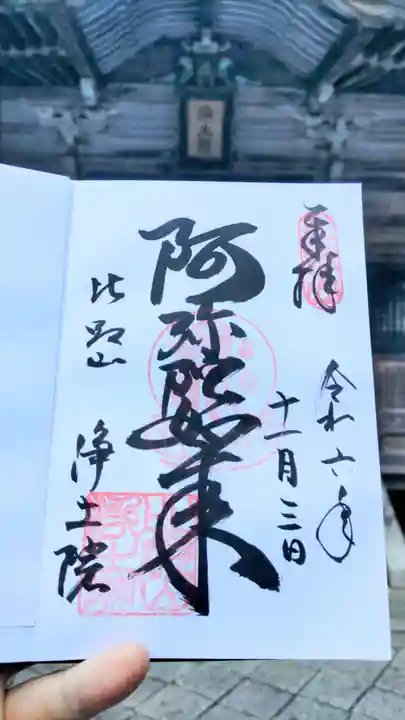 奉拝
令和六年
十一月三日
阿弥陀如来
比叡山
浄土院